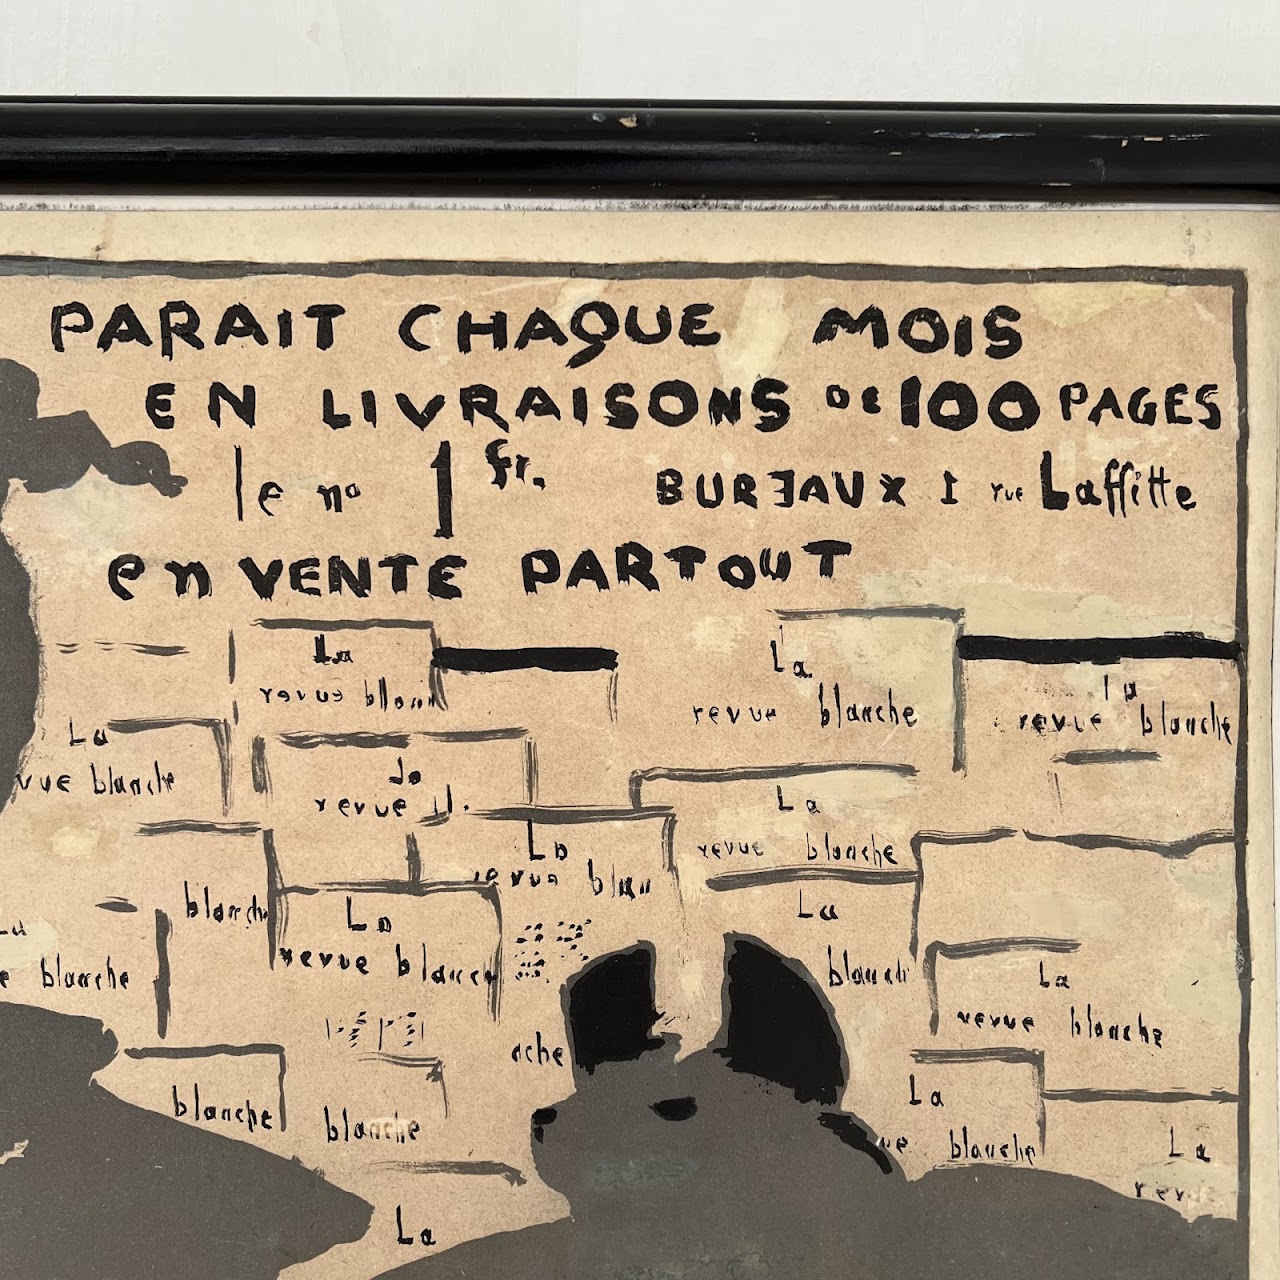 PARAIT CHAQUE MOIS
EN LIVRAISONS DE 100 PAGES
le no 1 fr. BUREAUX 1 rue Laffitte
en VENTE PARTOUT
La
revue
La
revue blanche
revue blanche
La
vue blanche
revue
La
revue blanche
La
revue blan
La
blanche
La
revue blanche
La
e blanche
La
revue blanche
che
La
blanche
blanche
blanche
La
ue blanche
La
revue
La